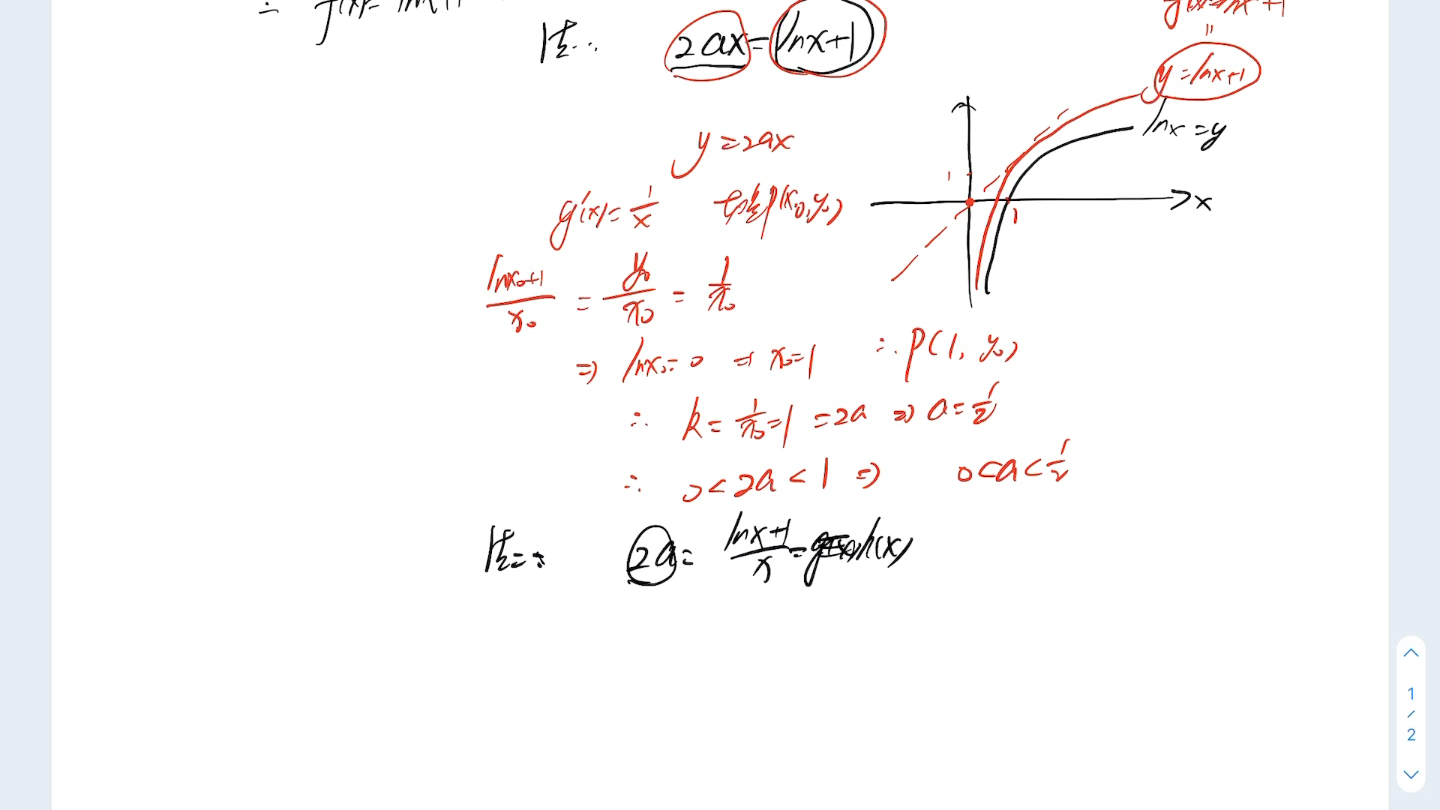 g(x)=lnx+1
法一: 2ax=lnx+1
y=lnx+1
lnx=y
y=2ax
1
g'(x)=1/x 切点P(x₀,y₀)
x
1
(lnx₀+1)/x₀ = y₀/x₀ = 1/x₀
⇒ lnx₀=0 ⇒ x₀=1 ∴P(1,y₀)
∴ k=1/x₀=1=2a ⇒ a=1/2
∴ 0<2a<1 ⇒ 0<a<1/2
法二: 2a=(lnx+1)/x=h(x)
1
/
2